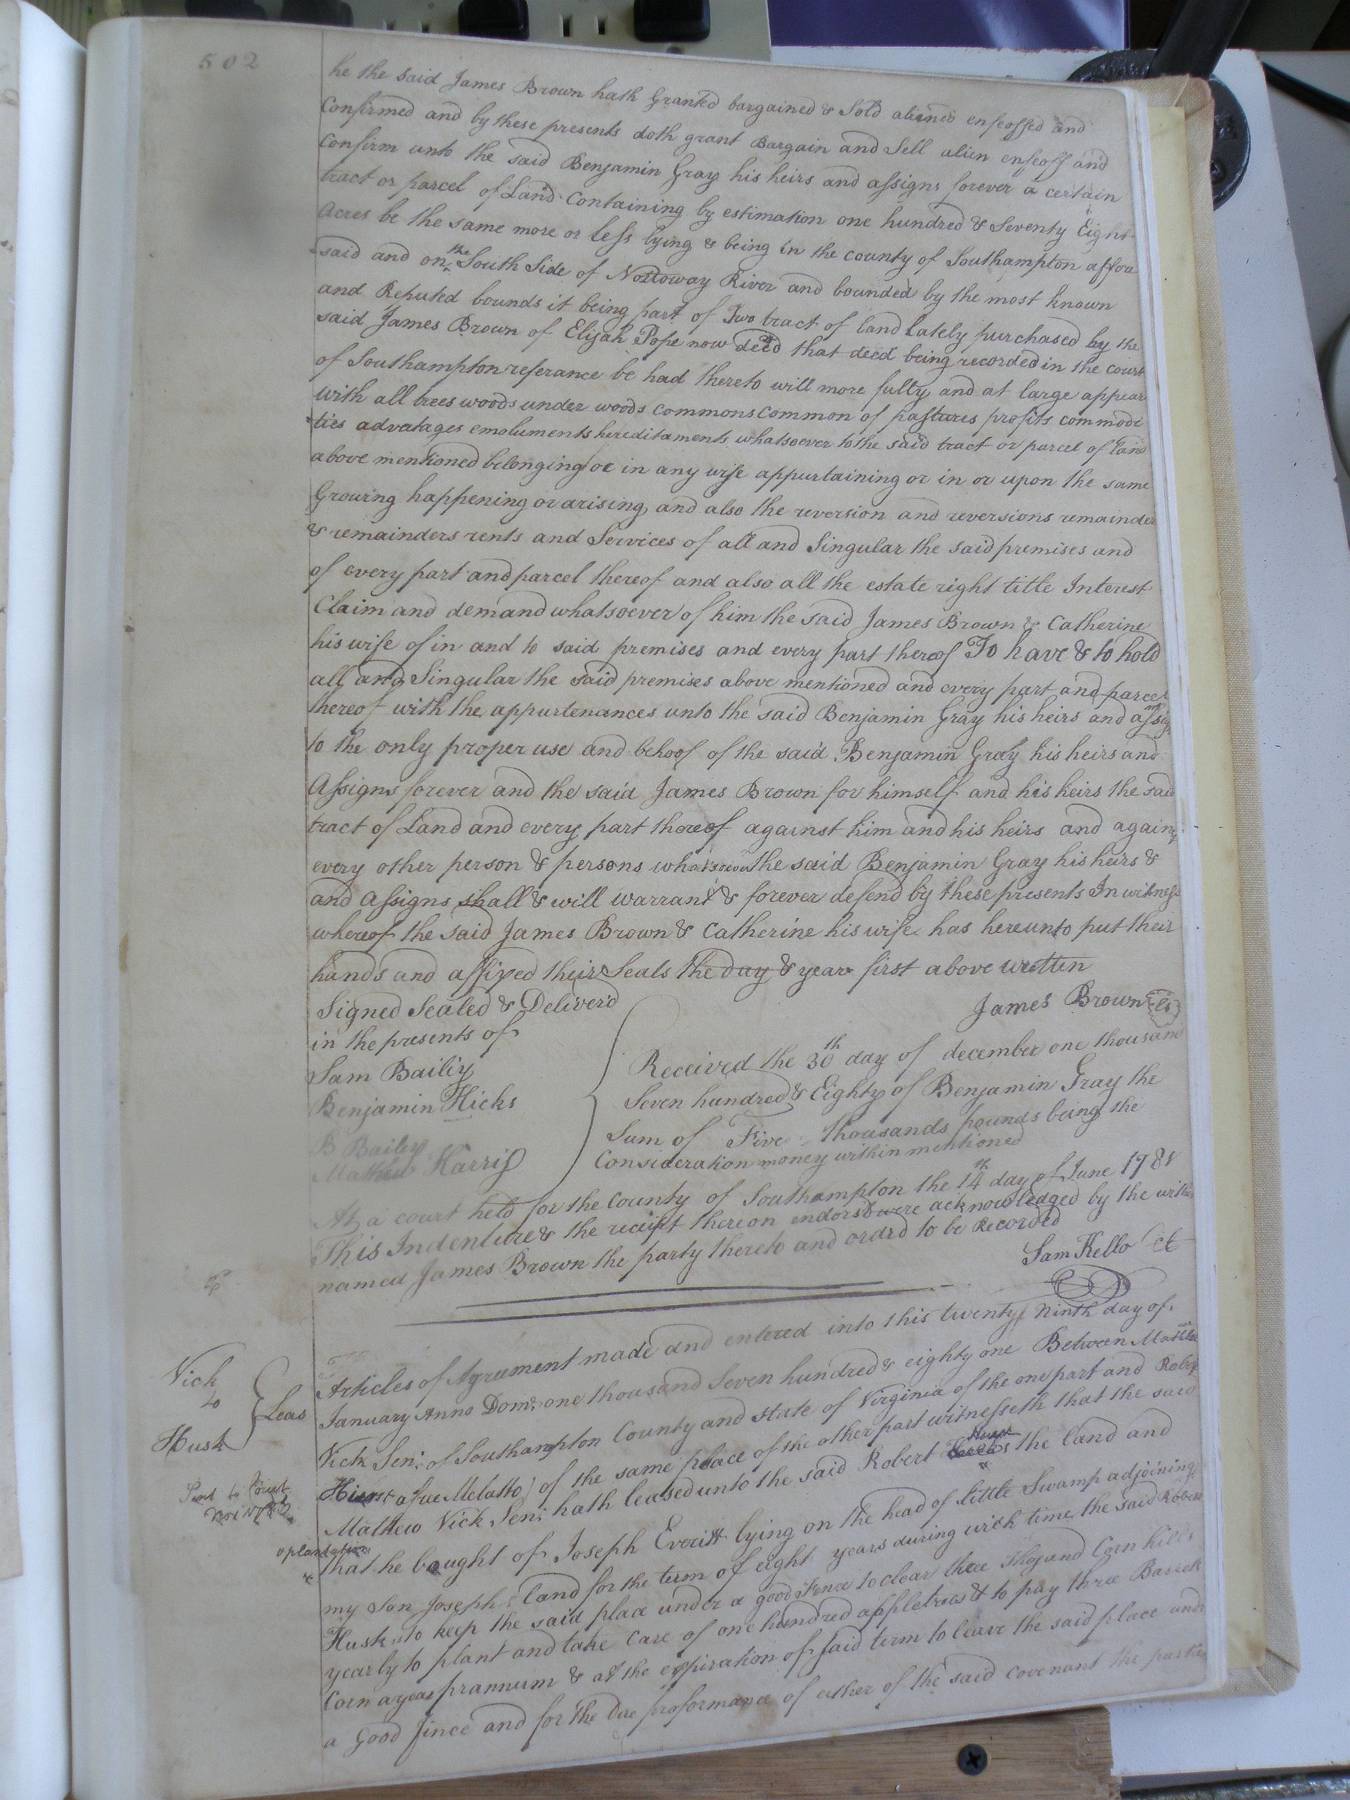 502
he the said James Brown hath Granted bargained & Sold aliened enfeoffed and
Confirmed and by these presents doth grant Bargain and Sell alien enfeoff and
Confirm unto the said Benjamin Gray his heirs and assigns forever a certain
tract or parcel of Land Containing by estimation one hundred & Seventy Eight
Acres be the same more or less lying & being in the county of Southampton affore
said and on the South Side of Nottoway River and bounded by the most known
and Reputed bounds it being part of Two tract of land lately purchased by the
said James Brown of Elijah Pope now decd that deed being recorded in the court
of Southampton referance be had thereto will more fully and at large appear
with all trees woods under woods commons common of pastures profits commodi
ties advatages emoluments hereditaments whatsoever to the said tract or parcel of Land
above mentioned belonging or in any wise appurtaining or in or upon the same
Growing happening or arising and also the reversion and reversions remainder
& remainders rents and Services of all and Singular the said premises and
of every part and parcel thereof and also all the estate right title Interest
Claim and demand whatsoever of him the said James Brown & Catherine
his wife of in and to said premises and every part thereof To have & to hold
all and Singular the said premises above mentioned and every part and parcel
thereof with the appurtenances unto the said Benjamin Gray his heirs and assigns
to the only proper use and behoof of the said Benjamin Gray his heirs and
Assigns forever and the said James Brown for himself and his heirs the said
tract of Land and every part thereof against him and his heirs and against
every other person & persons whatsoever the said Benjamin Gray his heirs &
and Assigns shall & will warrant & forever defend by these presents In witness
whereof the said James Brown & Catherine his wife has hereunto put their
hands and affixed their Seals the day & year first above written
Signed Sealed & Deliver'd
in the presents of
Sam Bailey
Benjamin Hicks
B Bailey
Mathew Harris
James Brown LS
Received the 30th day of december one thousand
Seven hundred & Eighty of Benjamin Gray the
Sum of Five thousands pounds being the
Consideration money within mentioned
At a court held for the County of Southampton the 14th day of June 1781
This Indenture & the receipt thereon endorsd were acknowledged by the within
named James Brown the party thereto and ordrd to be Recorded
Sam Kello Ct
Vick
to
Husk
Leas
Articles of Agreement made and entered into this twenty Ninth day of
January Anno Dom: one thousand Seven hundred & eighty one Between Matthew
Vick Sen: of Southampton County and state of Virginia of the one part and Robert
Husk a free Melatto of the same place of the other part witnesseth that the said
Mathew Vick Sen: hath leased unto the said Robert Husk the land and
plantation
that he bought of Joseph Everitt lying on the head of little Swamp adjoining
my Son Joseph's land for the term of eight years during wich time the said Robert
Husk is to keep the said place under a good fence to clear three thousand Corn hills
yearly to plant and take care of one hundred appletrees & to pay three Barrels
Corn a year prannum & at the expiration of said term to leave the said place under
a Good fince and for the Due proformance of either of the said covenant the parties